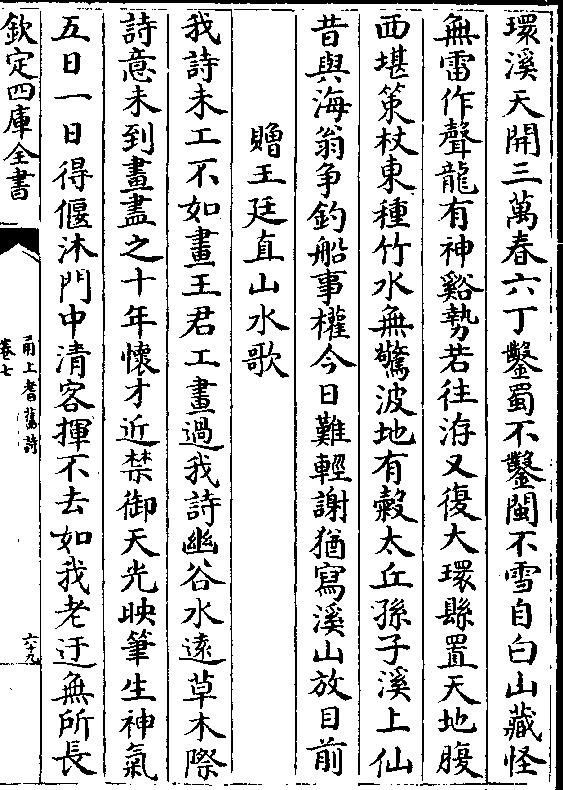 環溪天開三萬春六丁鑿蜀不鑿閩不雪自白山藏怪
無雷作聲龍有神谿勢若往洊又復大環縣置天地腹
西堪策杖東種竹水無驚波地有榖太丘孫子溪上仙
昔與海翁争釣船事權今日難輕謝猶寫溪山放目前
贈王廷直山水歌
我詩未工不如畫王君工畫過我詩幽谷水遠草木際
詩意未到畫盡之十年懷才近禁御天光映筆生神氣
五日一日得偃沐門中清客揮不去如我老迂無所長
欽定四庫全書
甬上耆舊詩
卷七
六十九